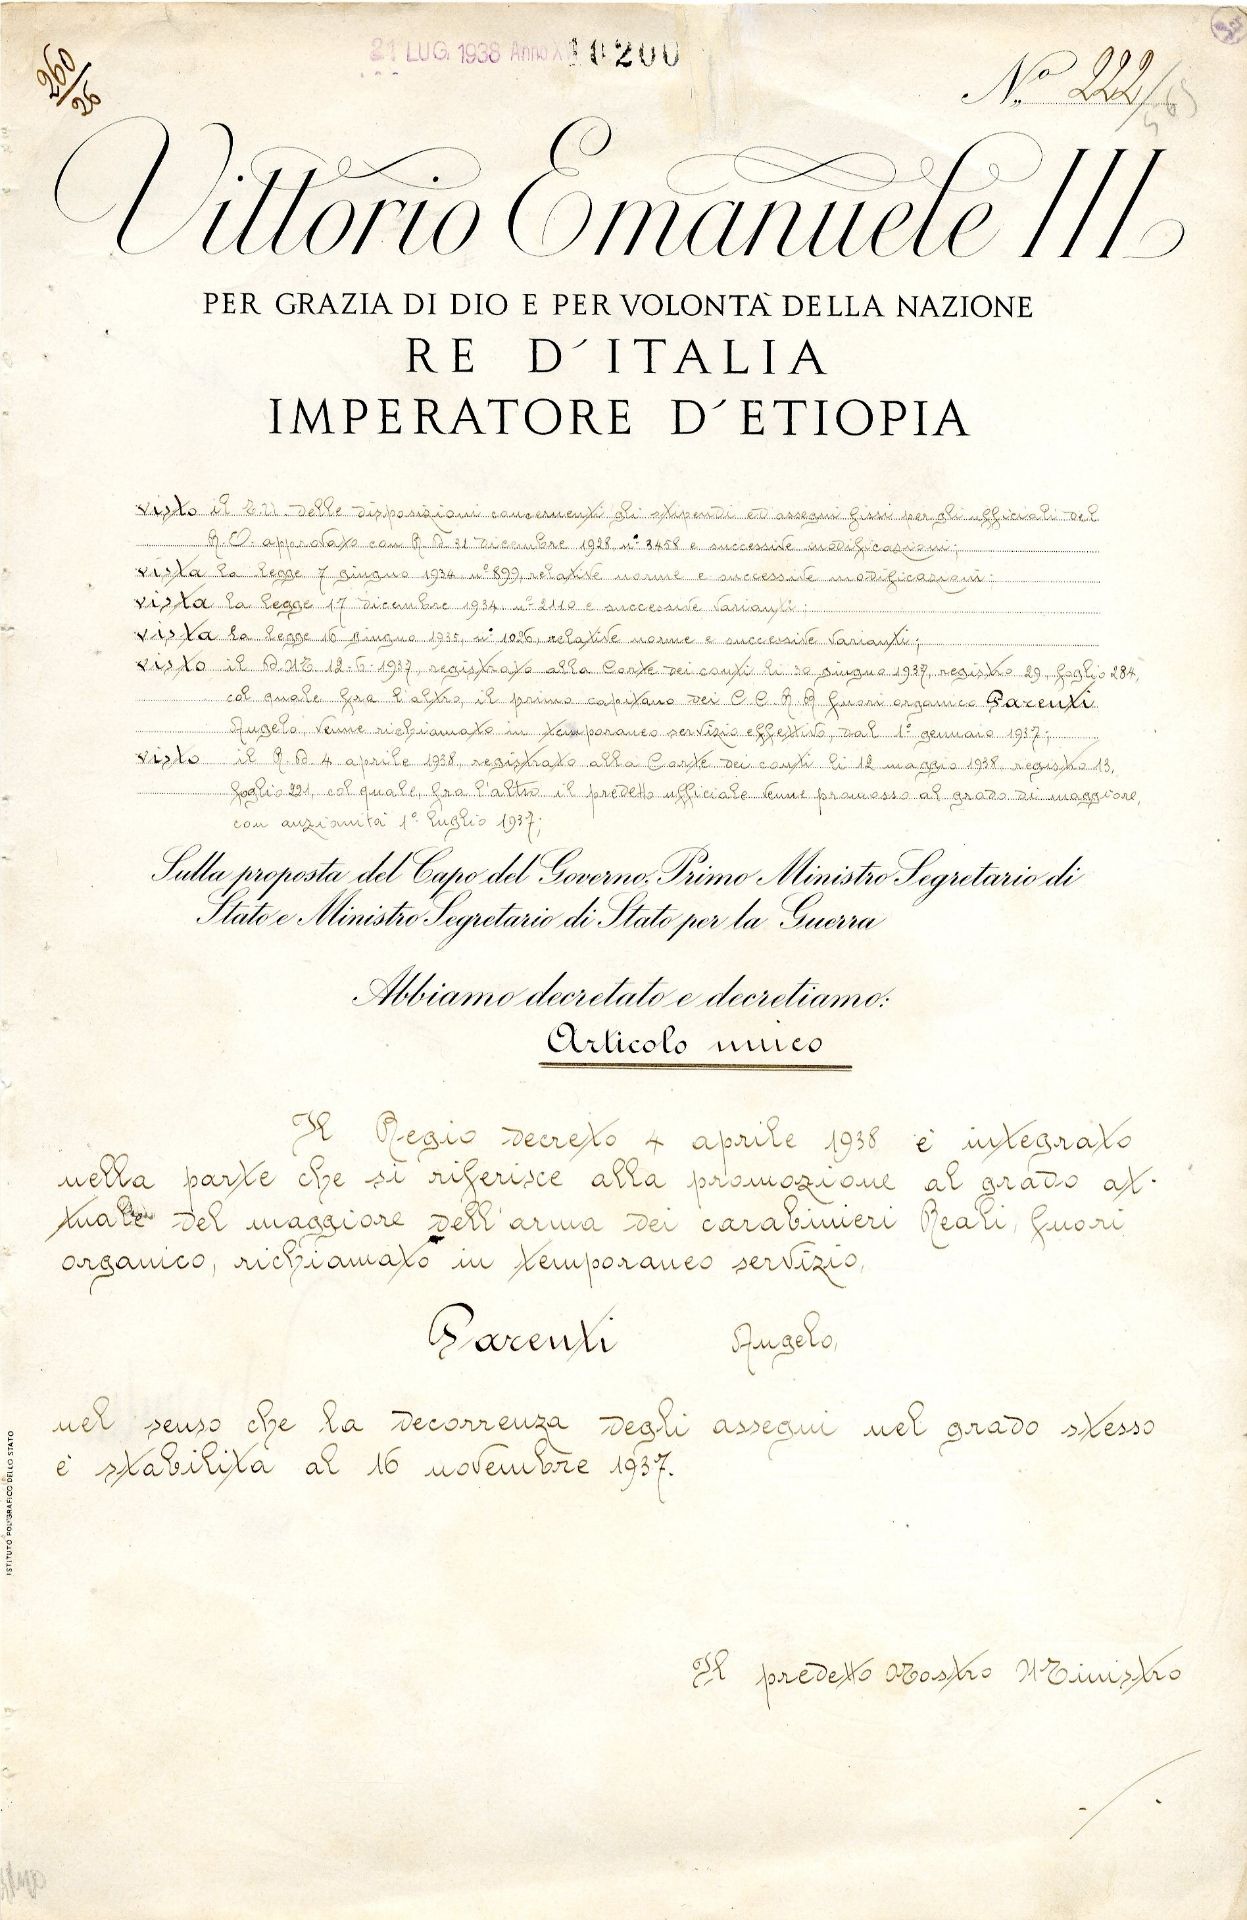 21 LUG. 1938 Anno X 10200
260/26
N.o 222/
Vittorio Emanuele III
PER GRAZIA DI DIO E PER VOLONTÀ DELLA NAZIONE
RE D'ITALIA
IMPERATORE D'ETIOPIA
visto il T.U. delle disposizioni concernenti gli stipendi ed assegni fissi per gli ufficiali del
R.O. approvato con R D 31 dicembre 1928 n° 3458 e successive modificazioni;
vista la legge 7 giugno 1934 n° 899, relative norme e successive modificazioni;
vista la legge 17 dicembre 1934 n° 2110 e successive varianti;
vista la legge 16 giugno 1935, n° 1026, relative norme e successive varianti;
visto il D.M 12-6-1937, registrato alla Corte dei conti li 30 giugno 1937, registro 29, foglio 284,
col quale fra l'altro, il primo capitano dei C C R R fuori organico Parenti
Angelo, venne richiamato in temporaneo servizio effettivo, dal 1° gennaio 1937;
visto il R.D 4 aprile 1938, registrato alla Corte dei conti li 12 maggio 1938 registro 13,
foglio 221, col quale, fra l'altro il predetto ufficiale venne promosso al grado di maggiore,
con anzianità 1° luglio 1937;
Sulla proposta del Capo del Governo, Primo Ministro Segretario di
Stato e Ministro Segretario di Stato per la Guerra
Abbiamo decretato e decretiamo:
Articolo unico
Il Regio decreto 4 aprile 1938 è integrato
nella parte che si riferisce alla promozione al grado at-
tuale del maggiore dell'arma dei carabinieri Reali, fuori
organico, richiamato in temporaneo servizio,
Parenti Angelo,
nel senso che la decorrenza degli assegni nel grado stesso
è stabilita al 16 novembre 1937.
Il predetto Nostro Ministro
ISTITUTO POLIGRAFICO DELLO STATO